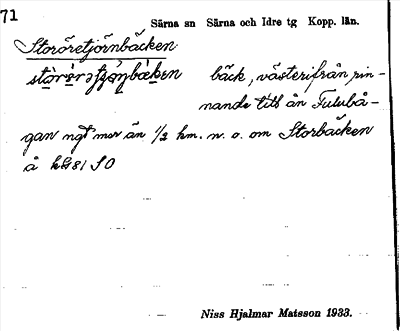 71
Särna sn Särna och Idre tg Kopp. län.
Storöretjörnbäcken
bäck, västerifrån rin-
nande till ån Fulubå-
gan ngt mer än 1/2 km. n. o. om Storbäcken
å kbl 81 SO
Niss Hjalmar Matsson 1933.